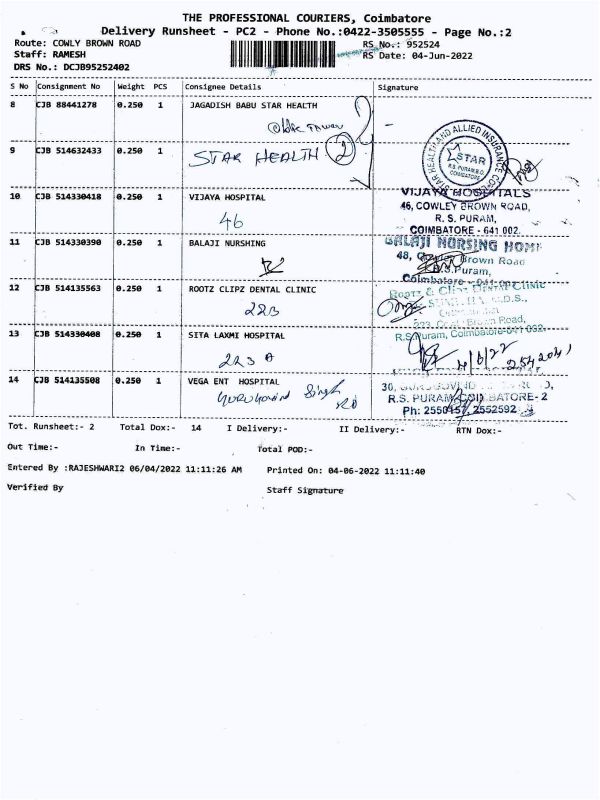 THE PROFESSIONAL COURIERS, Coimbatore
Delivery Runsheet - PC2 - Phone No.:0422-3505555 - Page No.:2
Route: COWLY BROWN ROAD
RS No.: 952524
Staff: RAMESH
RS Date: 04-Jun-2022
DRS No.: DCJB95252402
S No Consignment No Weight PCS Consignee Details Signature
8 CJB 88441278 0.250 1 JAGADISH BABU STAR HEALTH
9 CJB 514632433 0.250 1 STAR HEALTH 2
STAR HEALTH AND ALLIED INSURANCE
STAR
R.S. PURAM B.O.
COIMBATORE
10 CJB 514330418 0.250 1 VIJAYA HOSPITAL
46
VIJAYA HOSPITALS
46, COWLEY BROWN ROAD,
R. S. PURAM,
COIMBATORE - 641 002.
11 CJB 514330390 0.250 1 BALAJI NURSHING
BALAJI NURSING HOME
48, Brown Road
R.S.Puram,
Coimbatore
12 CJB 514135563 0.250 1 ROOTZ CLIPZ DENTAL CLINIC
223
Rootz & Clipz Dental Clinic
223, Brown Road,
R.S.Puram, Coimbatore-641 002.
13 CJB 514330408 0.250 1 SITA LAXMI HOSPITAL
223 A
4/6/22
14 CJB 514135508 0.250 1 VEGA ENT HOSPITAL
Gurugovind Singh RD
30, GURUGOVIND
R.S. PURAM, COIMBATORE - 2
Ph: 2550457, 2552592
Tot. Runsheet:- 2 Total Dox:- 14 I Delivery:- II Delivery:- RTN Dox:-
Out Time:- In Time:- Total POD:-
Entered By :RAJESHWARI2 06/04/2022 11:11:26 AM Printed On: 04-06-2022 11:11:40
Verified By Staff Signature